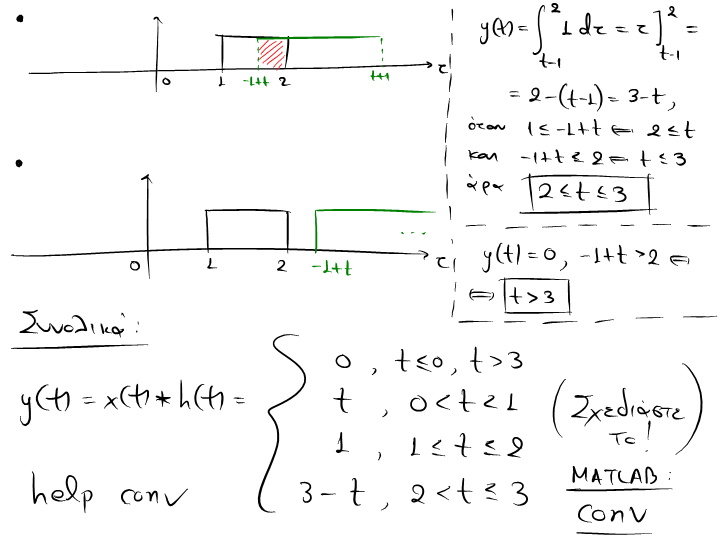 0 1 -1+t 2 t+1 τ
y(t) = ∫_{t-1}^{2} 1 dτ = τ]_{t-1}^{2} =
= 2-(t-1) = 3-t,
όταν 1 ≤ -1+t ⇐ 2 ≤ t
και -1+t ≤ 2 ⇐ t ≤ 3
άρα 2 ≤ t ≤ 3
0 1 2 -1+t ... τ
y(t) = 0, -1+t > 2 ⇐
⇔ t > 3
Συνολικά:
y(t) = x(t) * h(t) = {
0, t ≤ 0, t > 3
t, 0 < t < 1
1, 1 ≤ t ≤ 2
3-t, 2 < t ≤ 3
(Σχεδιάστε
το!)
help conv
MATLAB:
conv